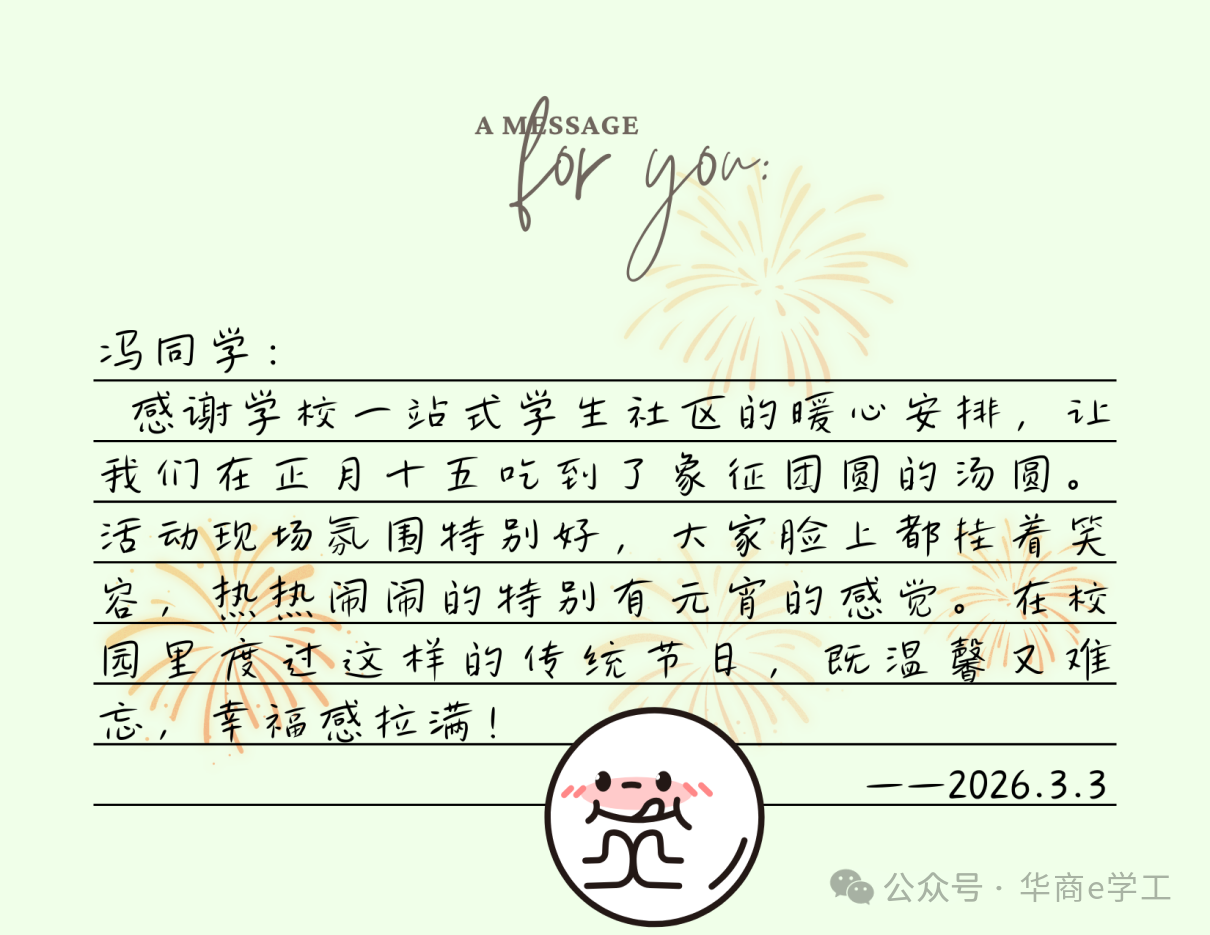 A MESSAGE
for you:
冯同学：
感谢学校一站式学生社区的暖心安排，让
我们在正月十五吃到了象征团圆的汤圆。
活动现场氛围特别好，大家脸上都挂着笑
容，热热闹闹的特别有元宵的感觉。在校
园里度过这样的传统节日，既温馨又难
忘，幸福感拉满！
——2026.3.3
公众号·华商e学工